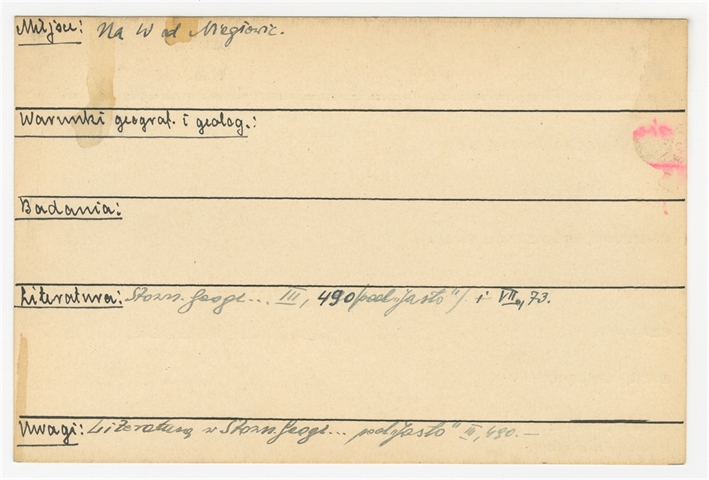 Miejsce: Na W od Niegłowic.
Warunki geograf. i geolog.:
Badania:
Literatura: Słown. Geogr... III, 490 /pod „Jasło"/ i VII, 73.
Uwagi: Literatura w Słown. Geogr... pod „Jasło" III, 490. —